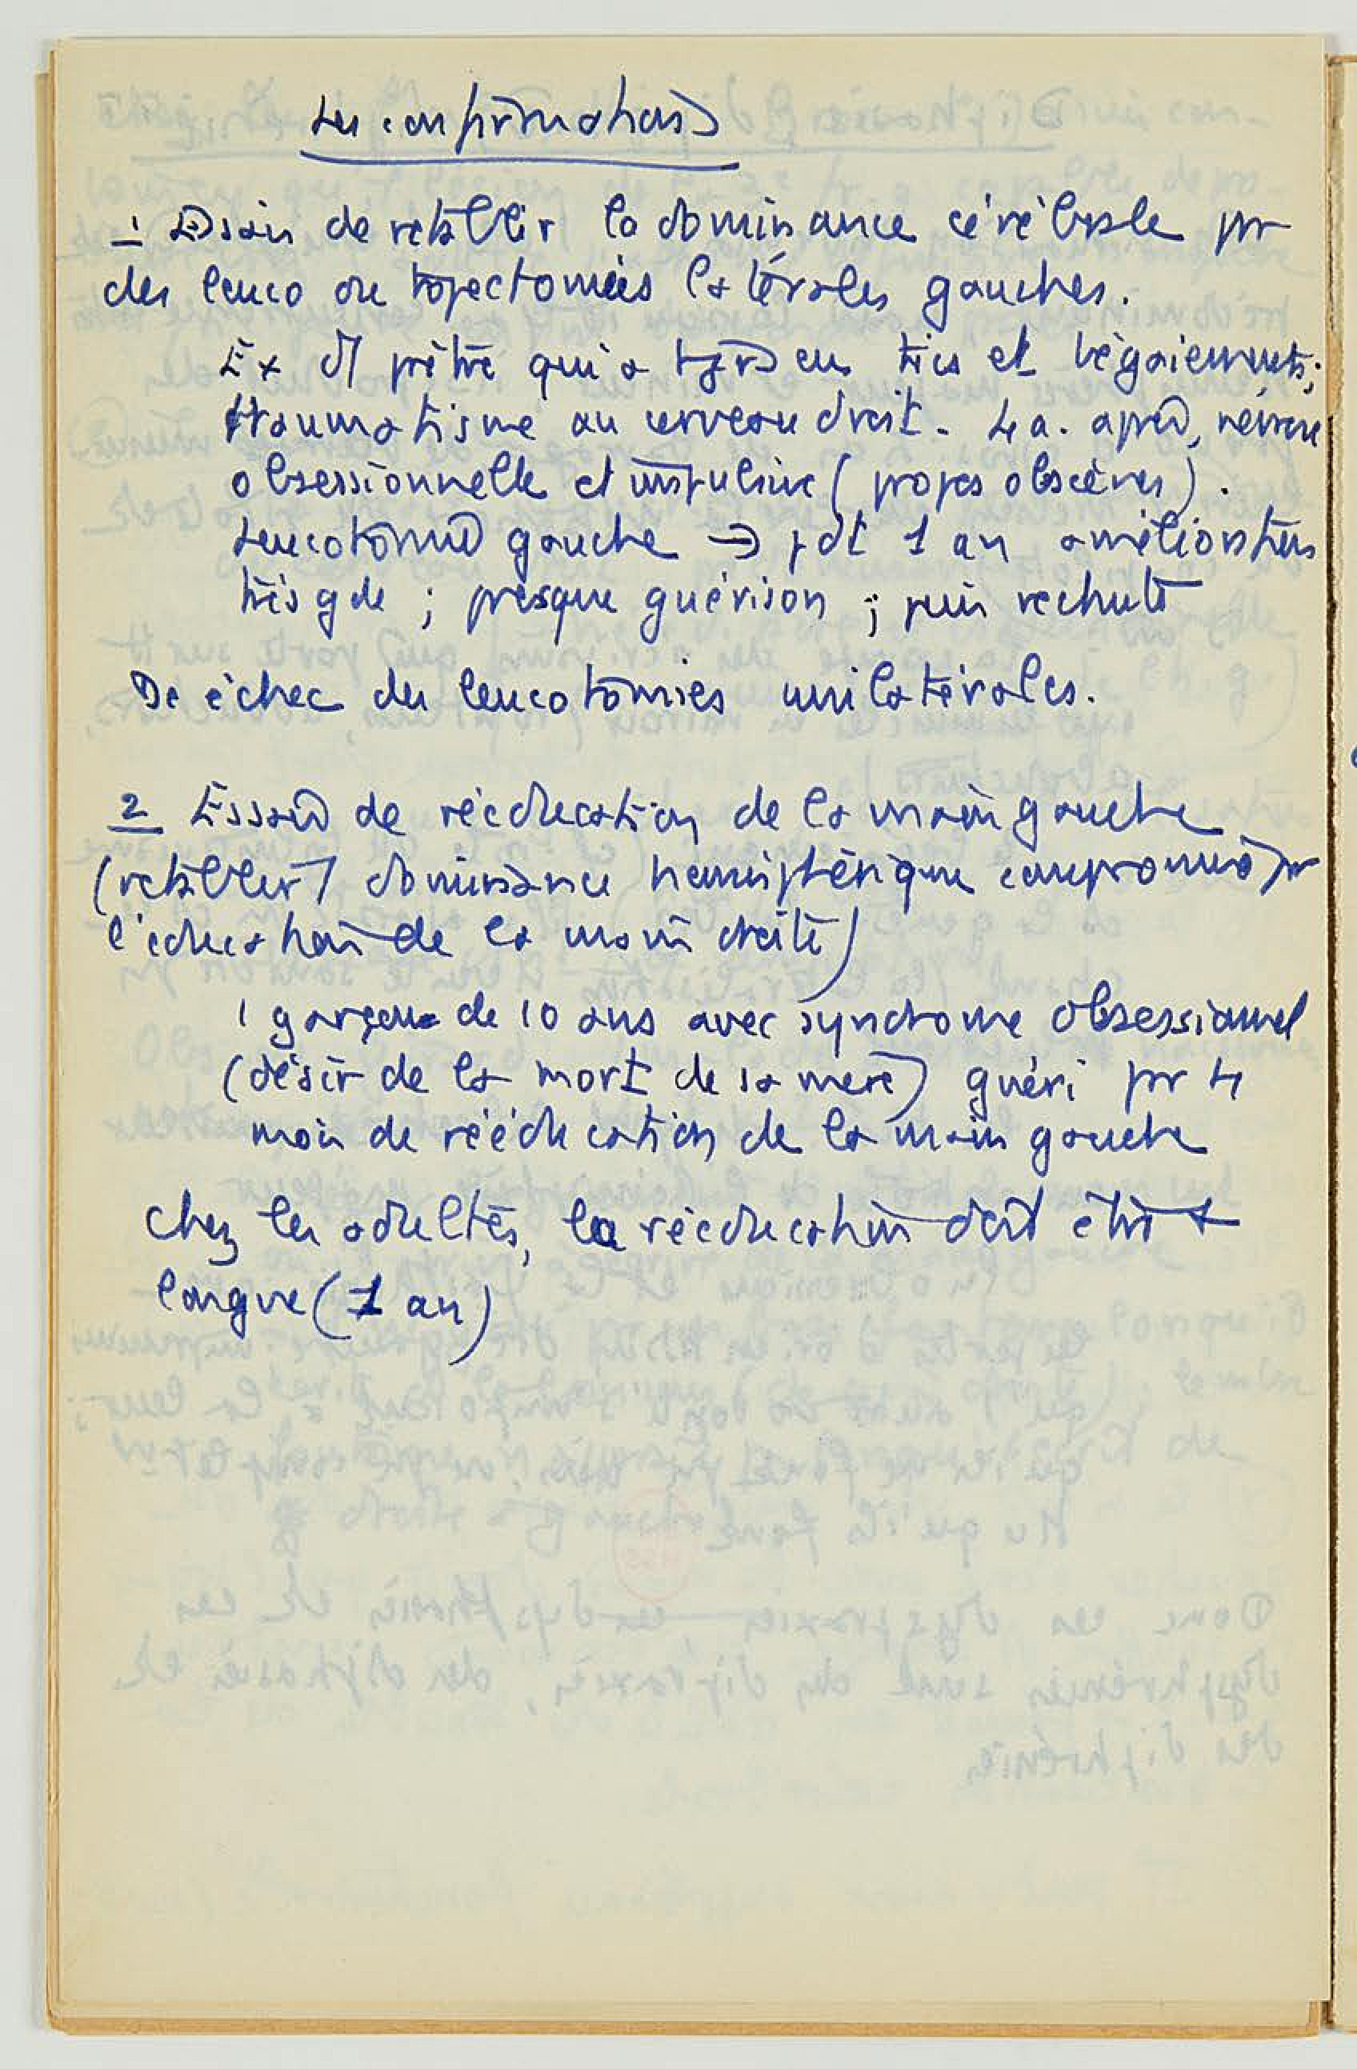 Les confirmations
1 Essais de rétablir la dominance cérébrale pr
des leuco ou topectomies latérales gauches.
Ex d'1 prêtre qui a tjrs eu tics et bégaiements;
traumatisme au cerveau droit. 4 a. après, névrose
obsessionnelle et impulsive (propos obscènes).
Leucotomie gauche → pdt 1 an améliorations
très gde ; presque guérison ; puis rechute
De échec des leucotomies unilatérales.
2 Essais de rééducation de la main gauche
(rétablir 1 dominance hémisphérique compromise pr
l'éducation de la main droite)
1 garçon de 10 ans avec syndrome obsessionnel
(désir de la mort de sa mère) guéri pr 4
mois de rééducation de la main gauche
Chez les adultes, la rééducation doit être +
longue (1 an)